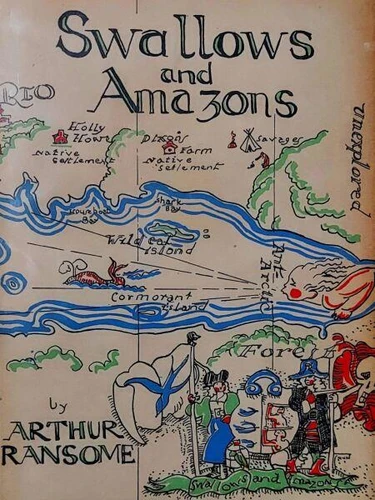 Swallows
and
Amazons
RIO
Holly
Howe
Native
Settlement
Dixon's
Farm
Native
Settlement
Savages
unexplored
Houseboat
Bay
Shark
Bay
Wild Cat
Island
Cormorant
Island
Antarctic
Forest
by
ARTHUR
RANSOME
Swallows and Amazons